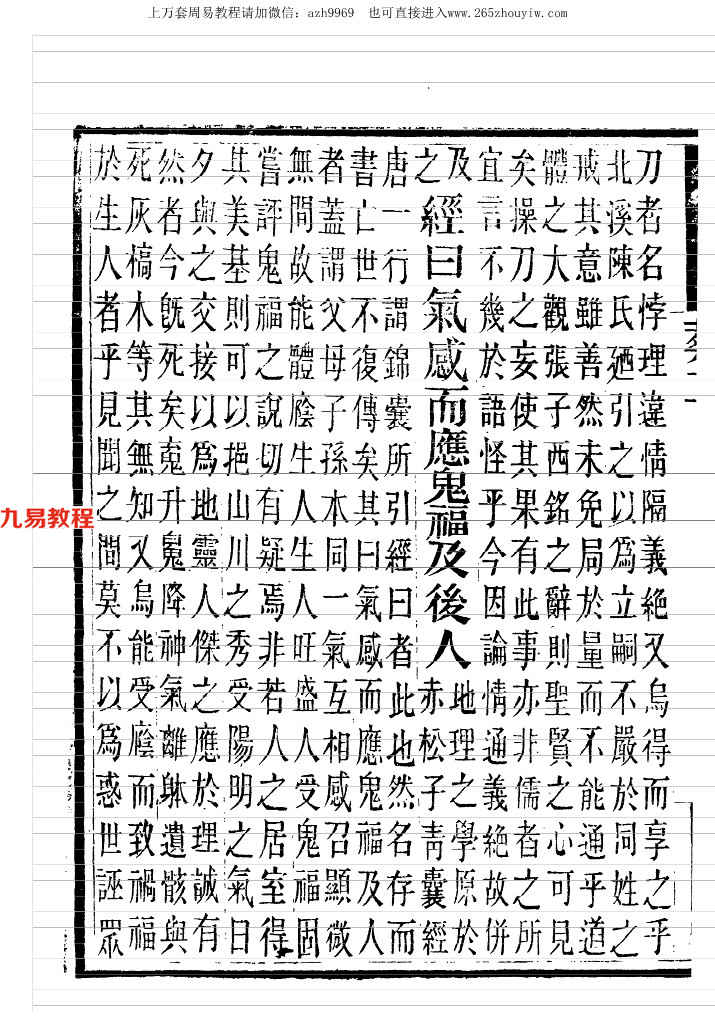 上万套周易教程请加微信：azh9969　也可直接进入www.265zhouyiw.com
刀者名悖理違情隔義絶又烏得而享之乎
北溪陳氏廼引之以爲立嗣不嚴於同姓之
戒其意雖善然未免局於量而不能通乎道
體之大觀張子西銘之辭則聖賢之心可見
矣操刀之妄使其果有此事亦非儒者之所
宜言不幾於語怪乎今因論情通義絶故併
及之
經曰氣感而應鬼福及後人
地理之學原於
赤松子青囊經
唐一行謂錦囊所引經曰者此也然名存而
書亡世不復傳矣其曰氣感而應鬼福及人
者蓋謂父母子孫本同一氣互相感召顯微
無間故能體廕生人生人旺盛人受鬼福固
嘗評鬼福之說切有疑焉非若人之居室得
其美基則可以挹山川之秀受陽明之氣日
夕與之交接以爲地靈人傑之應於理誠有
然者今旣死矣䰟升鬽降神氣離躰遺骸與
死灰槁木等其無知又烏能受廕而致禍福
於生人者乎見聞之間莫不以爲惑世誣眾
九易教程